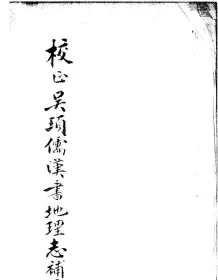 校正吳頊儒漢書地理志補